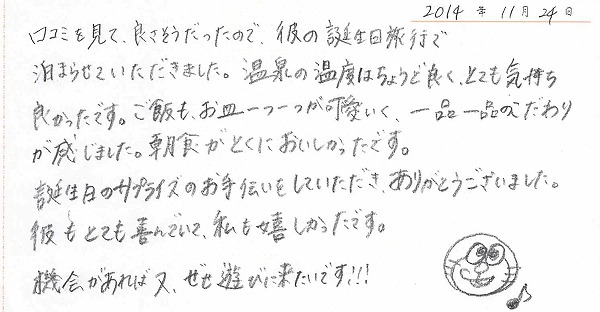 2014年11月24日
口コミを見て、良さそうだったので、彼の誕生日旅行で
泊まらせていただきました。温泉の温度はちょうど良く、とても気持ち
良かったです。ご飯も、お皿一つ一つが可愛いく、一品一品のこだわり
が感じました。朝食がとくにおいしかったです。
誕生日のサプライズのお手伝いをしていただき、ありがとうございました。
彼もとても喜んでいて、私も嬉しかったです。
機会があれば又、ぜひ遊びに来たいです!!!